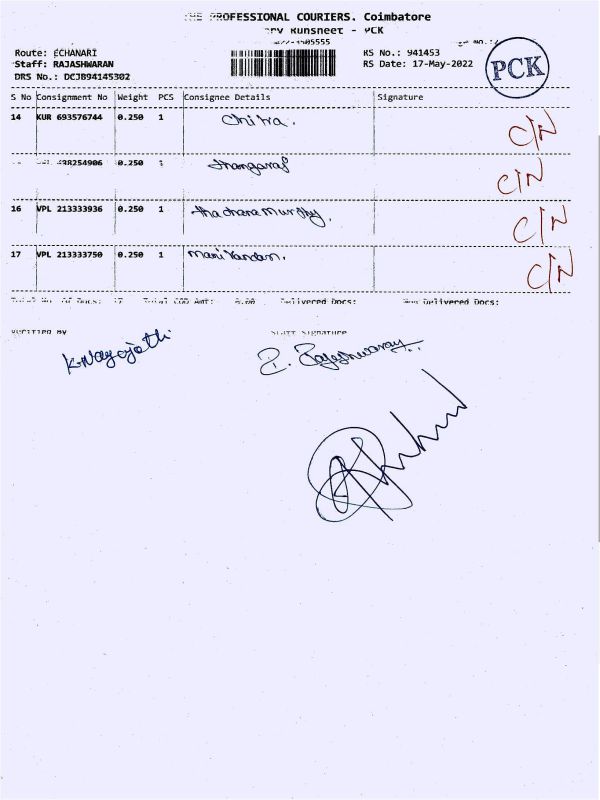 THE PROFESSIONAL COURIERS. Coimbatore
Runsheet - PCK
Route: ECHANARI
RS No.: 941453
Staff: RAJASHWARAN
RS Date: 17-May-2022
PCK
DRS No.: DCJB94145302
S No Consignment No Weight PCS Consignee Details Signature
14 KUR 693576744 0.250 1 Chitra. C/N
438254906 0.250 1 thangaraj C/N
16 VPL 213333936 0.250 1 C/N
17 VPL 213333750 0.250 1 C/N
Total No. Of Docs: 17 Total COD Amt: 0.00 Delivered Docs: Non Delivered Docs:
Verified By Staff Signature